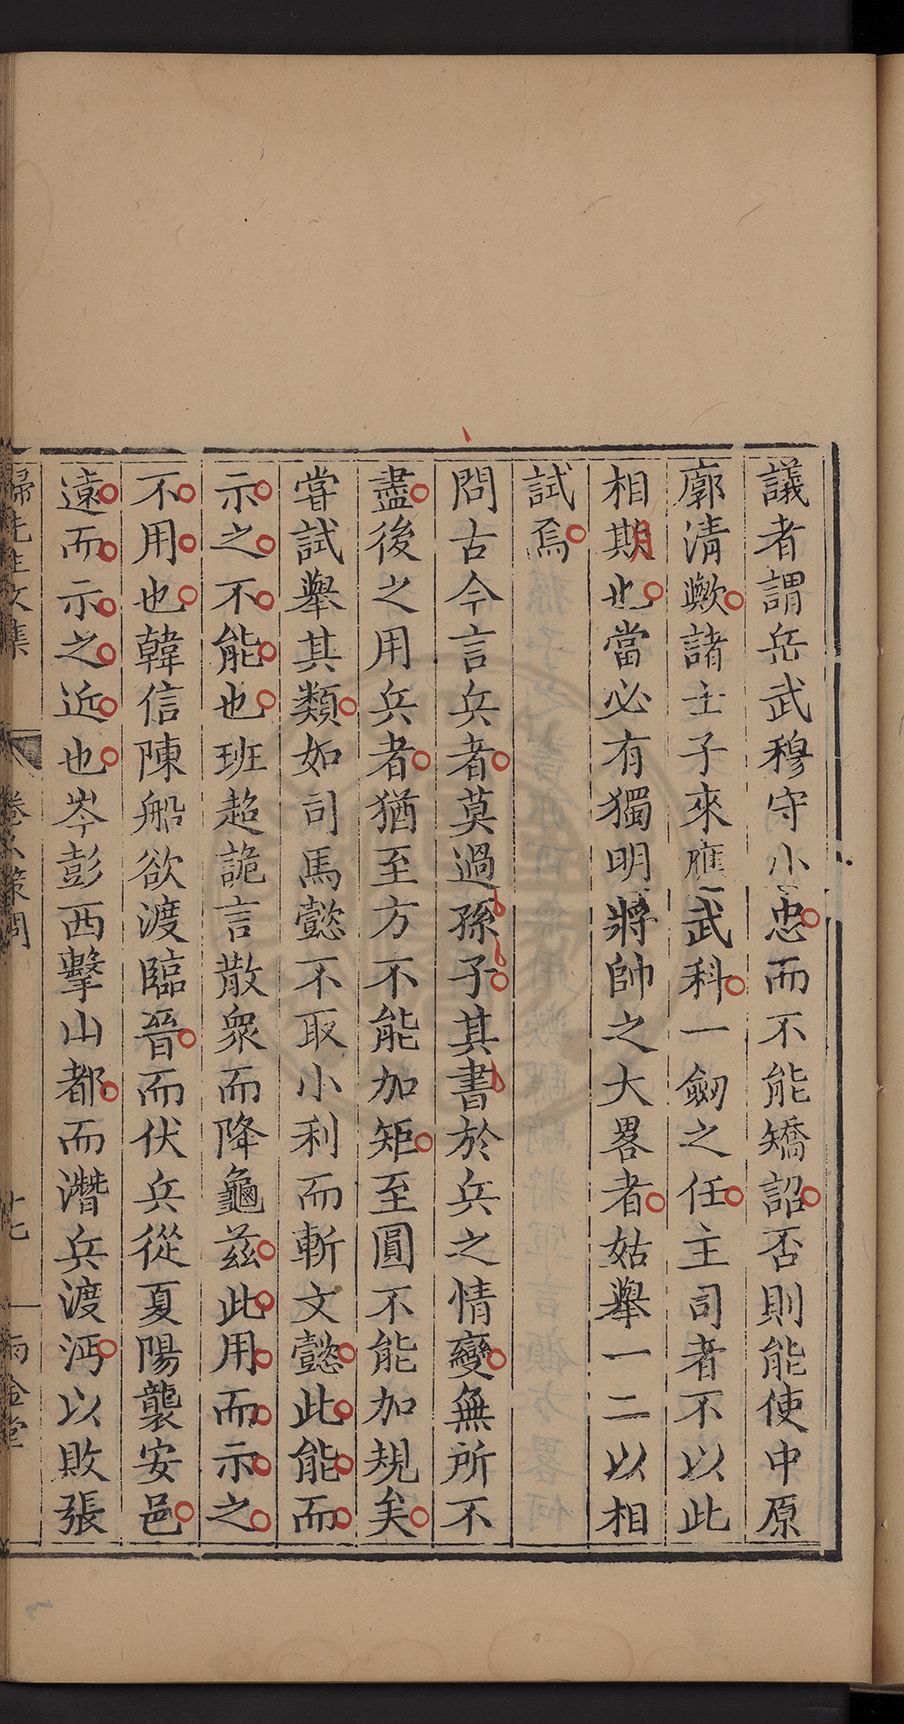 議者謂岳武穆守小忠而不能矯詔否則能使中原
廓清歟諸士子來應武科一劒之任主司者不以此
相期也當必有獨明將帥之大畧者姑舉一二以相
試焉
問古今言兵者莫過孫子其書於兵之情變無所不
盡後之用兵者猶至方不能加矩至圓不能加規矣
嘗試舉其類如司馬懿不取小利而斬文懿此能而
示之不能也班超詭言散衆而降龜茲此用而示之
不用也韓信陳船欲渡臨晉而伏兵從夏陽襲安邑
遠而示之近也岑彭西擊山都而潛兵渡沔以敗張
歸先生文集